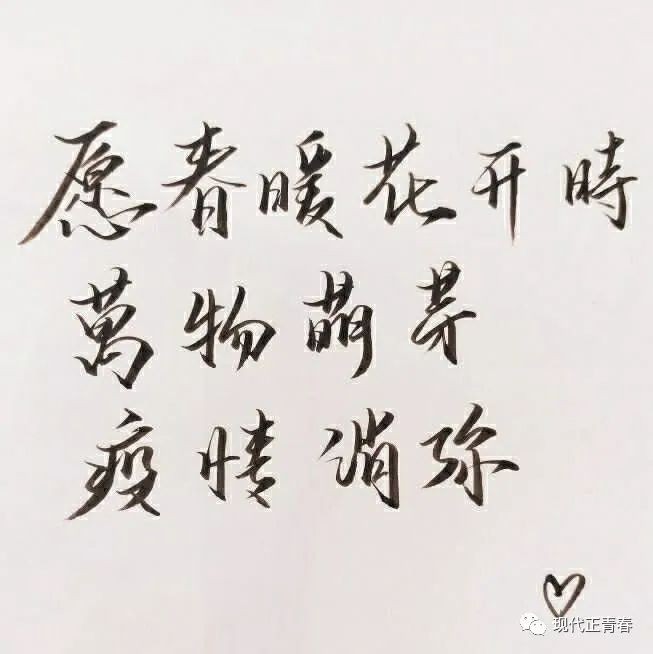 愿春暖花开時
萬物萌芽
疫情消弥
现代正青春